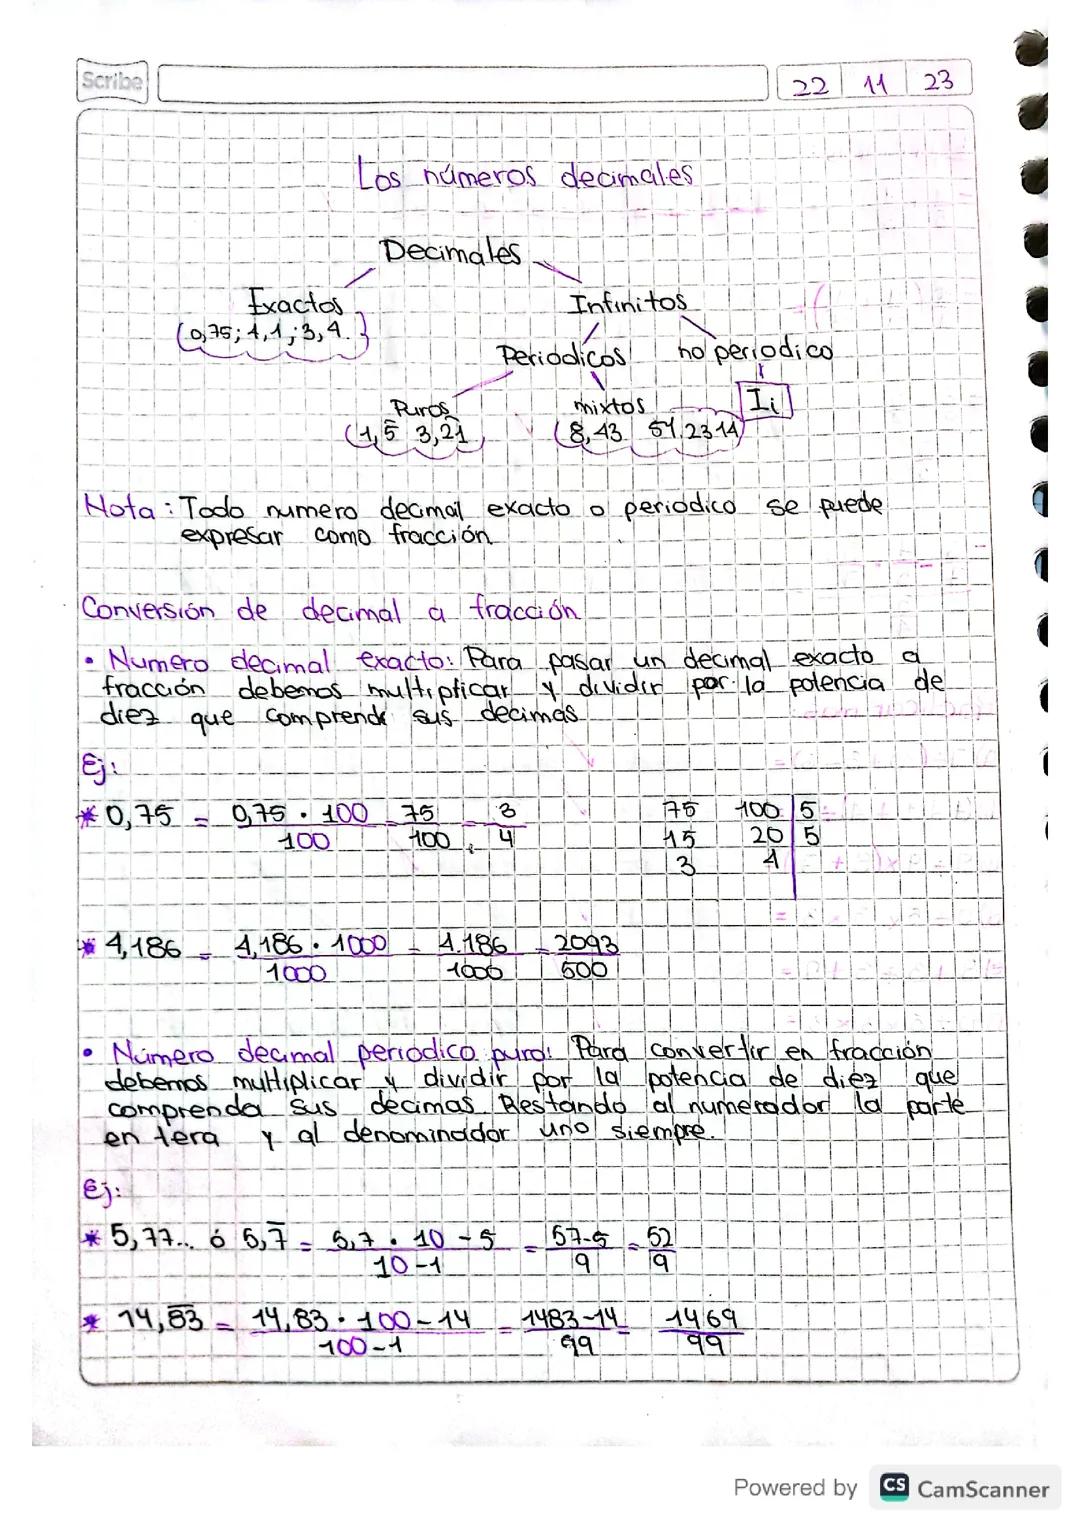 Scribe
22 11 23
Los números decimales
Decimales
Exactos Infinitos
(0,75; 1,1; 3,4.}
Periodicos no periodico
Puros mixtos Ii
(1,5̄ 3,2̄1̄) (8,43 51,2314)
Nota: Todo numero decimal exacto o periodico se puede
expresar como fracción
Conversión de decimal a fracción
• Numero decimal exacto: Para pasar un decimal exacto a
fracción debemos multiplicar y dividir por la potencia de
diez que comprende sus decimas
Ej:
* 0,75 = 0,75 · 100 = 75 = 3 75 100 | 5
100 100 4 15 20 | 5
3 4
* 4,186 = 4,186 · 1000 = 4.186 = 2093
1000 1000 500
• Número decimal periodico puro: Para convertir en fracción
debemos multiplicar y dividir por la potencia de diez que
comprenda sus decimas Restando al numerador la parte
entera y al denominador uno siempre.
Ej:
* 5,77.. ó 5,7̄ = 5,7 · 10 - 5 = 57-5 = 52
10-1 9 9
* 14,8̄3̄ = 14,83 · 100 - 14 = 1483-14 = 1469
100-1 99 99
Powered by CS CamScanner